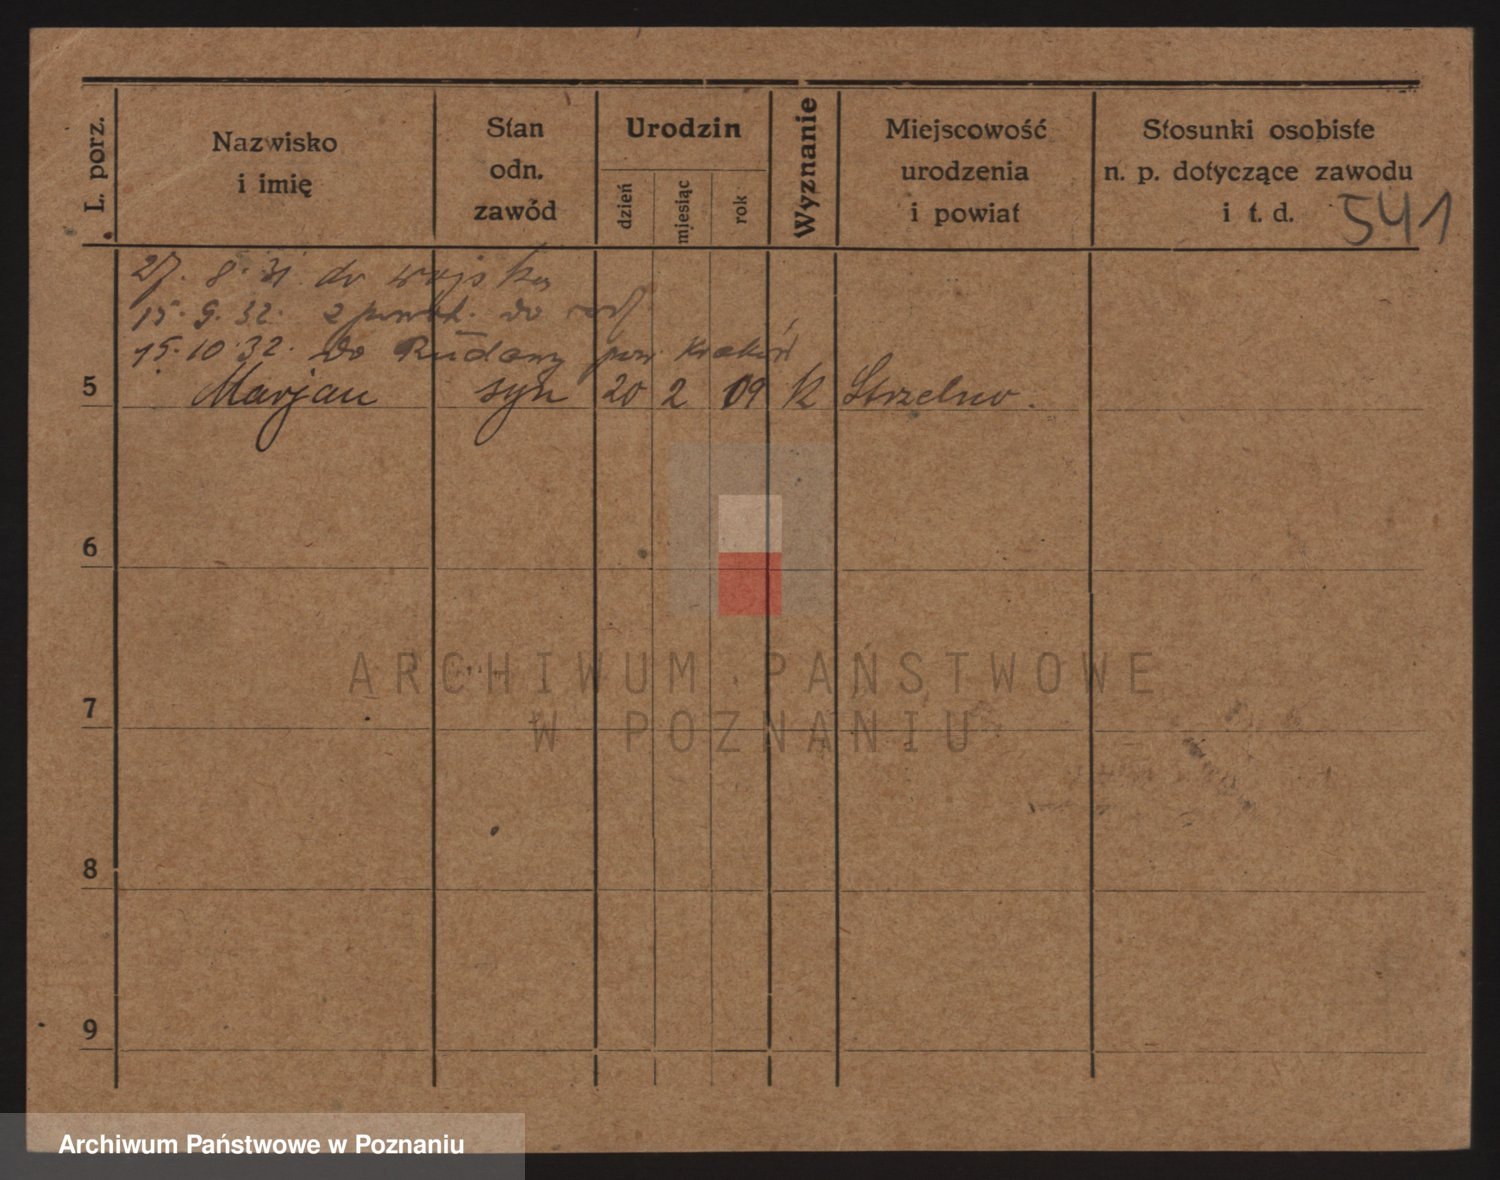 L. porz.
Nazwisko
i imię
Stan
odn.
zawód
Urodzin
dzień
miesiąc
rok
Wyznanie
Miejscowość
urodzenia
i powiat
Stosunki osobiste
n. p. dotyczące zawodu
i t. d.
541
27. 8. 31. do wojska
15. 9. 32. z powrot. do
15. 10. 32. do Rudawy pow. Kraków
5 Marjan syn 20 2 09 k Strzelno.
6
7
8
9
ARCHIWUM PAŃSTWOWE
W POZNANIU
Archiwum Państwowe w Poznaniu